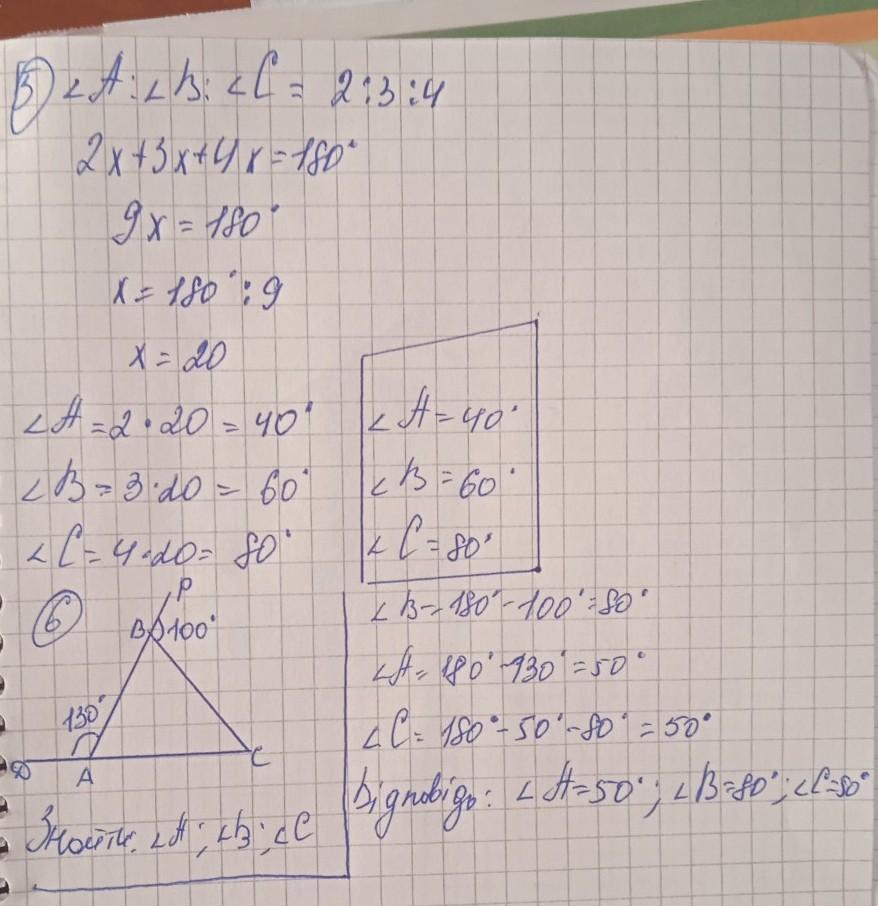 5 ∠A:∠B:∠C = 2:3:4
2x+3x+4x=180°
9x=180°
x=180°:9
x=20
∠A=2·20=40°
∠B=3·20=60°
∠C=4·20=80°
∠A=40°
∠B=60°
∠C=80°
6
P
B 100°
130°
D A C
Знайти: ∠A; ∠B; ∠C
∠B=180°-100°=80°
∠A=180°-130°=50°
∠C=180°-50°-80°=50°
Відповідь: ∠A=50°; ∠B=80°; ∠C=50°